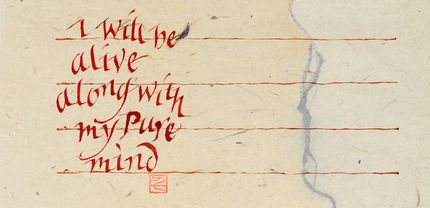 I will be
alive
along with
my Pure
mind